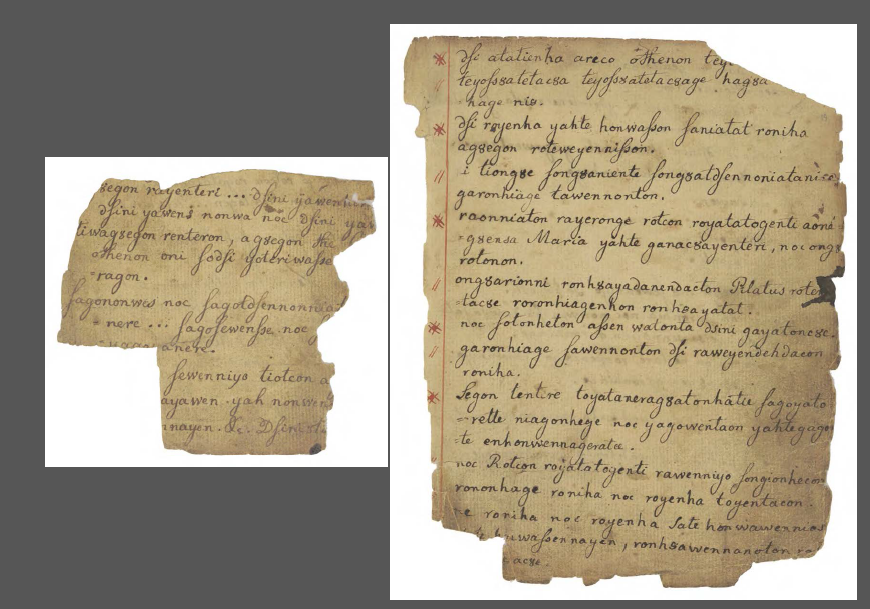 segon rayenteri ... dsini yawen
dsini yawens nonwa noc dsini
iwagsegon renteron, agsegon
othenon oni sodsi goteriwasse
-ragon.
sagononwes noc sagotdsennonniat
= nere ... sagosewensse noc
anere.
sewenniyo tiotcon a
ayawen yah nonwen
nnayen. &c. Dsini
dsi atatienha areco othenon tey
teyossatetacsa teyossatetacsage hagsa
-hage nis.
dsi royenha yahte honwasson saniatat roniha
agsegon roteweyennisson.
i tiongse songsaniente songsatdsennoniatani
garonhiage tawennonton.
raonniaton rayeronge rotcon royatatogenti aone
-gsensa Maria yahte ganacsayenteri, noc ongs
rotonon.
ongsarionni ronhsayadanendacton Pilatus roten
-tacse roronhiagenhon ronhsayatat.
noc sotonheton assen watonta dsini gayatonese.
garonhiage sawennonton dsi raweyendehdacon
roniha.
segon tentire toyataneragsatonhatie sagoyato
-rette niagonhege noc yagowentaon yahtegago
-te enhonwennageratce.
noc Rotcon royatatogenti rawenniyo songionhecon
rononhage roniha noc royenha toyentacon.
ne roniha noc royenha sate honwawennios
huwassennayen, ronhsawennanoton
cacse.